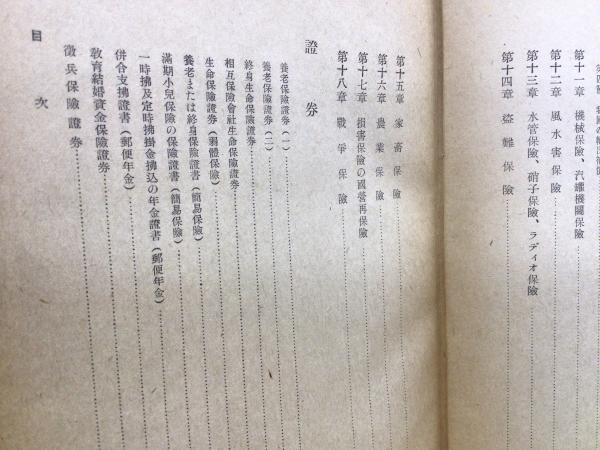 第十一章 機械保險、汽罐機關保險
第十二章 風水害保險
第十三章 水管保險、硝子保險、ラディオ保險
第十四章 盜難保險
第十五章 家畜保險
第十六章 農業保險
第十七章 損害保險の國營再保險
第十八章 戰爭保險
證券
養老保險證券（一）
養老保險證券（二）
終身生命保險證券
相互保險會社生命保險證券
生命保險證券（弱體保險）
養老または終身保險證書（簡易保險）
滿期小兒保險の保險證書（簡易保險）
一時拂及定時拂掛金拂込の年金證書（郵便年金）
併合支拂證書（郵便年金）
敎育結婚資金保險證券
徵兵保險證券
目次